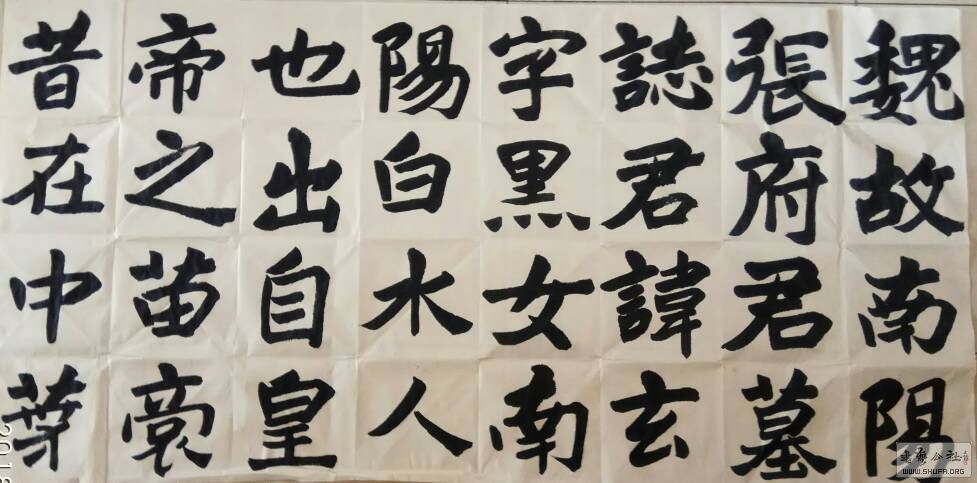 魏故南陽
張府君墓
誌君諱玄
字黑女南
陽白水人
也出自皇
帝之苗裔
昔在中葉
WWW.SHUFA.ORG